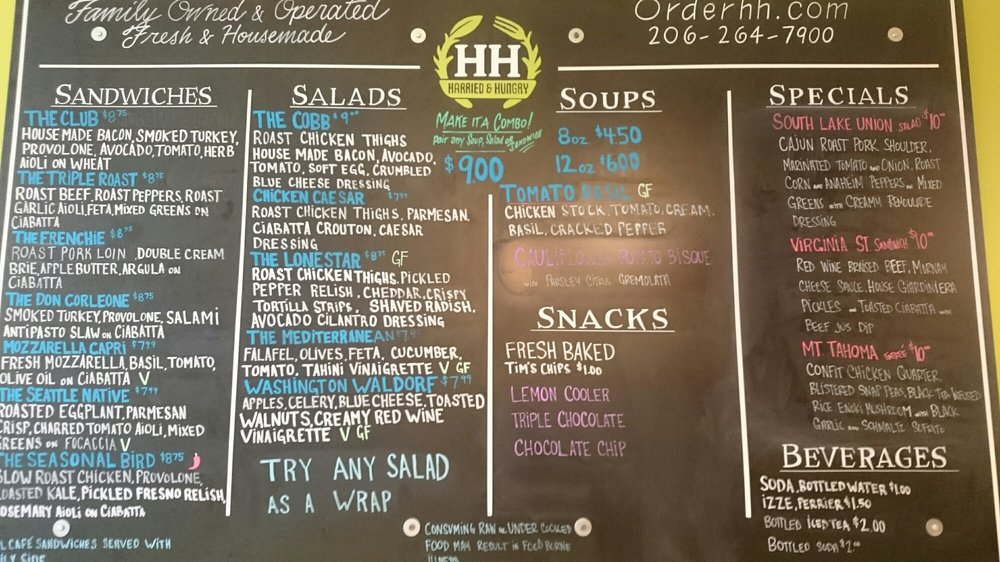 Family Owned & Operated
Fresh & Housemade
HH
HARRIED & HUNGRY
Orderhh.com
206-264-7900
SANDWICHES
THE CLUB $8.75
HOUSE MADE BACON, SMOKED TURKEY,
PROVOLONE, AVOCADO, TOMATO, HERB
AIOLI ON WHEAT
THE TRIPLE ROAST $8.75
ROAST BEEF, ROAST PEPPERS, ROAST
GARLIC AIOLI, FETA, MIXED GREENS ON
CIABATTA
THE FRENCHIE $8.75
ROAST PORK LOIN, DOUBLE CREAM
BRIE, APPLE BUTTER, ARGULA ON
CIABATTA
THE DON CORLEONE $8.75
SMOKED TURKEY, PROVOLONE, SALAMI
ANTIPASTO SLAW ON CIABATTA
MOZZARELLA CAPRI $7.99
FRESH MOZZARELLA, BASIL, TOMATO,
OLIVE OIL ON CIABATTA V
THE SEATTLE NATIVE $7.99
ROASTED EGGPLANT, PARMESAN
CRISP, CHARRED TOMATO AIOLI, MIXED
GREENS ON FOCACCIA V
THE SEASONAL BIRD $8.75
SLOW ROAST CHICKEN, PROVOLONE,
ROASTED KALE, PICKLED FRESNO RELISH,
ROSEMARY AIOLI ON CIABATTA
CAFÉ SANDWICHES SERVED WITH
SIDE
SALADS
THE COBB
ROAST CHICKEN THIGHS
HOUSE MADE BACON, AVOCADO,
TOMATO, SOFT EGG, CRUMBLED
BLUE CHEESE DRESSING
CHICKEN CAESAR $7.99
ROAST CHICKEN THIGHS, PARMESAN,
CIABATTA CROUTON, CAESAR
DRESSING
THE LONESTAR $8.75 GF
ROAST CHICKEN THIGHS, PICKLED
PEPPER RELISH, CHEDDAR, CRISPY
TORTILLA STRIPS, SHAVED RADISH,
AVOCADO CILANTRO DRESSING
THE MEDITERRANEAN $7.99
FALAFEL, OLIVES, FETA, CUCUMBER,
TOMATO, TAHINI VINAIGRETTE V GF
WASHINGTON WALDORF $7.99
APPLES, CELERY, BLUE CHEESE, TOASTED
WALNUTS, CREAMY RED WINE
VINAIGRETTE V GF
TRY ANY SALAD
AS A WRAP
MAKE IT A COMBO!
pair any Soup, Salad or SANDWICH
$9.00
SOUPS
8oz $4.50
12oz $6.00
TOMATO BASIL GF
CHICKEN STOCK, TOMATO, CREAM,
BASIL, CRACKED PEPPER
CAULIFLOWER POTATO BISQUE
WITH PARSLEY CITRUS GREMOLATA
SNACKS
FRESH BAKED
TIM'S CHIPS $1.00
LEMON COOLER
TRIPLE CHOCOLATE
CHOCOLATE CHIP
CONSUMING RAW OR UNDER COOKED
FOOD MAY RESULT IN FOOD BORNE
ILLNESS
SPECIALS
SOUTH LAKE UNION SALAD $10.00
CAJUN ROAST PORK SHOULDER,
MARINATED TOMATO AND ONION, ROAST
CORN AND ANAHEIM PEPPERS ON MIXED
GREENS WITH CREAMY REMOULADE
DRESSING
VIRGINIA ST. SANDWICH $10.00
RED WINE BRAISED BEEF, MORNAY
CHEESE SAUCE, HOUSE GIARDINIERA
PICKLES ON TOASTED CIABATTA WITH
BEEF JUS DIP
MT TAHOMA ENTRÉE $10.00
CONFIT CHICKEN QUARTER,
BLISTERED SNAP PEAS, BLACK TEA INFUSED
RICE, ENOKI MUSHROOM WITH BLACK
GARLIC AND SCHMALTZ SOFRITO
BEVERAGES
SODA, BOTTLED WATER $1.00
IZZE, PERRIER $1.50
BOTTLED ICED TEA $2.00
BOTTLED SODA $2.00